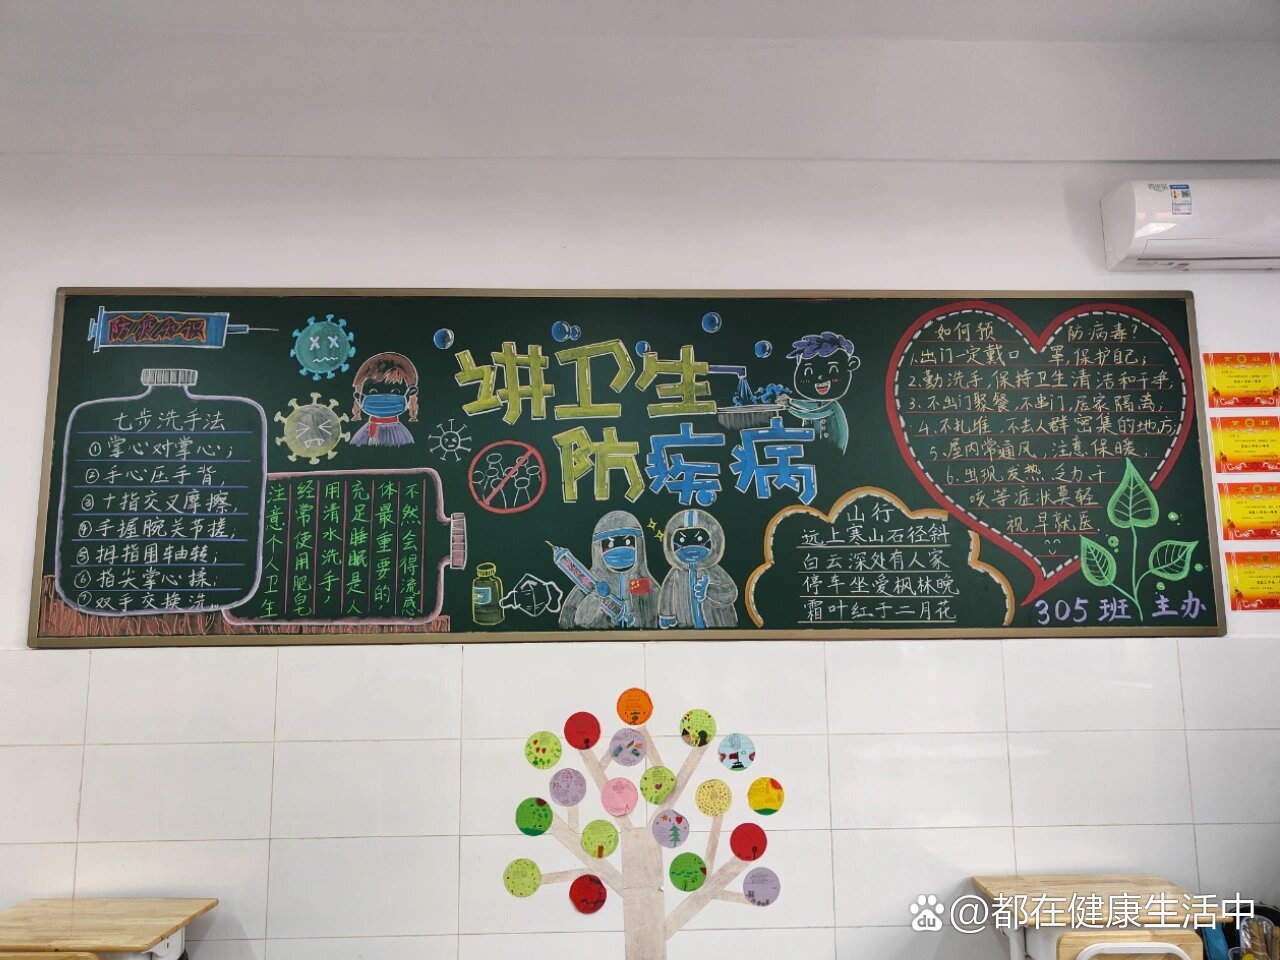 防疫知识
七步洗手法
①掌心对掌心;
②手心压手背,
③十指交叉摩擦,
④手握腕关节搓,
⑤拇指用轴转,
⑥指尖掌心揉,
⑦双手交换洗..
注意个人卫生
经常使用肥皂
用清水洗手,
充足睡眠是人
体最重要的,
不然会得流感
讲卫生
防疾病
山行
远上寒山石径斜
白云深处有人家
停车坐爱枫林晚
霜叶红于二月花
如何预 防病毒?
1.出门一定戴口 罩,保护自己;
2.勤洗手,保持卫生清洁和干净;
3.不出门聚餐,不串门,居家隔离;
4.不扎堆,不去人群密集的地方;
5.屋内常通风,注意保暖,
6.出现发热,乏力,干
咳等症状莫轻
视,早就医.
305班 主办
du @都在健康生活中